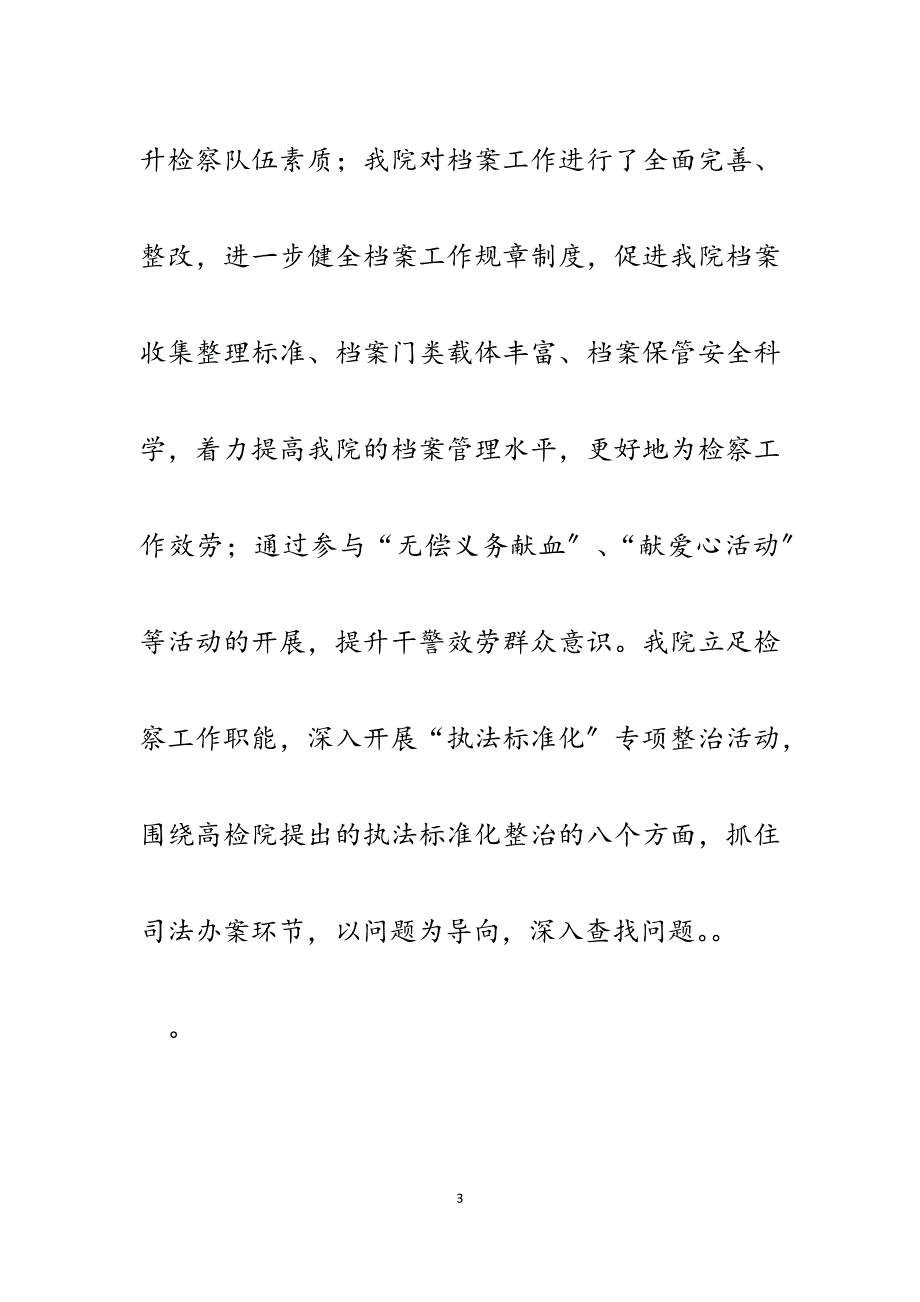 升检察队伍素质；我院对档案工作进行了全面完善、
整改，进一步健全档案工作规章制度，促进我院档案
收集整理标准、档案门类载体丰富、档案保管安全科
学，着力提高我院的档案管理水平，更好地为检察工
作效劳；通过参与“无偿义务献血〞、“献爱心活动〞
等活动的开展，提升干警效劳群众意识。我院立足检
察工作职能，深入开展“执法标准化〞专项整治活动，
围绕高检院提出的执法标准化整治的八个方面，抓住
司法办案环节，以问题为导向，深入查找问题。。
。
3